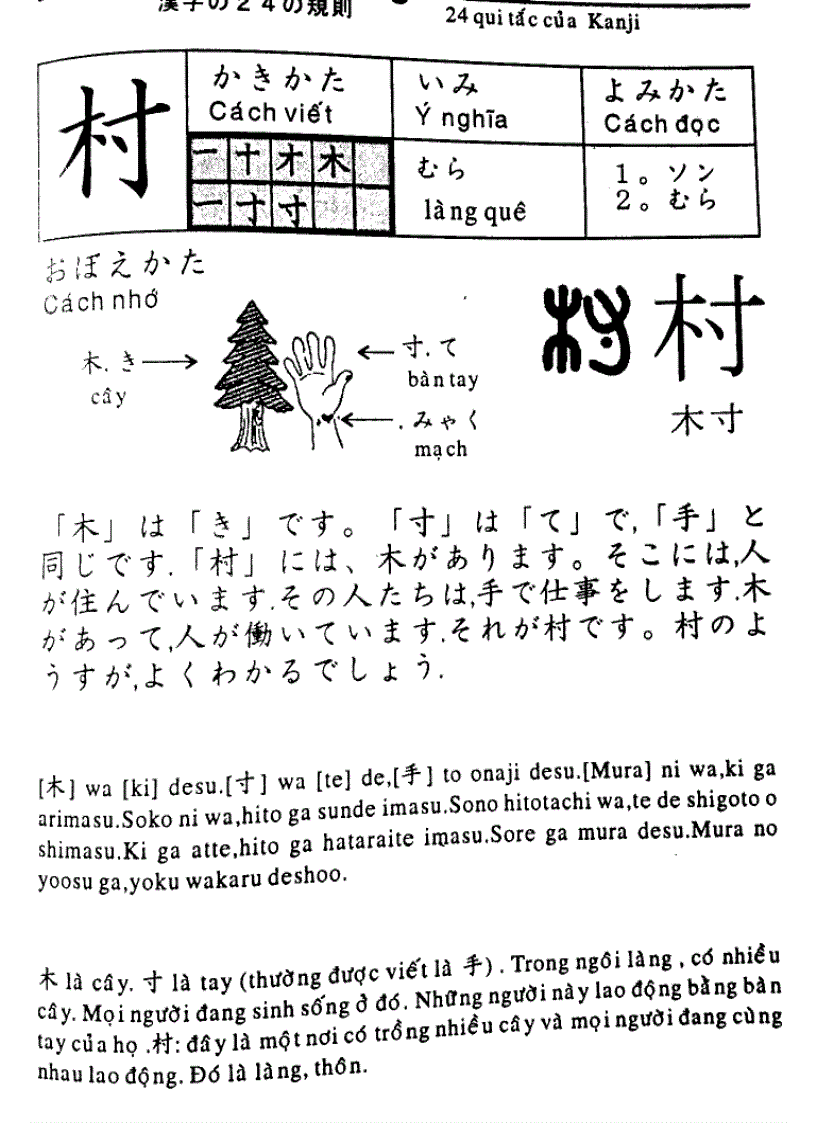 漢字の24の規則
24 qui tắc của Kanji
村
かきかた
Cách viết
いみ
Ý nghĩa
よみかた
Cách đọc
一 十 才 木
一 寸 寸
むら
làng quê
1。ソン
2。むら
おぼえかた
Cách nhớ
木. き
cây
寸. て
bàn tay
. みゃく
mạch
村 村
木寸
「木」は「き」です。「寸」は「て」で,「手」と
同じです.「村」には、木があります。そこには,人
が住んでいます.その人たちは,手で仕事をします.木
があって,人が働いています.それが村です。村のよ
うすが,よくわかるでしょう.
[木] wa [ki] desu.[寸] wa [te] de,[手] to onaji desu.[Mura] ni wa,ki ga
arimasu.Soko ni wa,hito ga sunde imasu.Sono hitotachi wa,te de shigoto o
shimasu.Ki ga atte,hito ga hataraite imasu.Sore ga mura desu.Mura no
yoosu ga,yoku wakaru deshoo.
木 là cây. 寸 là tay (thường được viết là 手) . Trong ngôi làng , có nhiều
cây. Mọi người đang sinh sống ở đó. Những người này lao động bằng bàn
tay của họ .村: đây là một nơi có trồng nhiều cây và mọi người đang cùng
nhau lao động. Đó là làng, thôn.